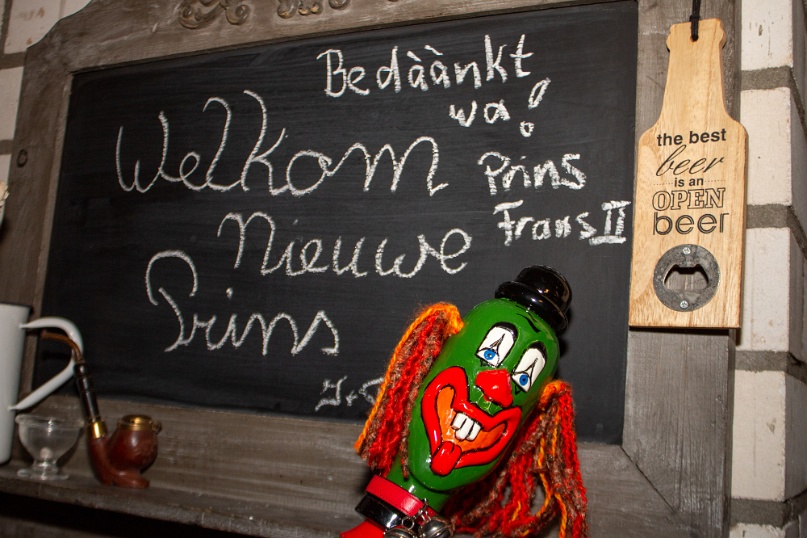 Bedàànkt
wa!
Welkom
Nieuwe
Prins
Prins
Frans II
the best
beer
is an
OPEN
beer